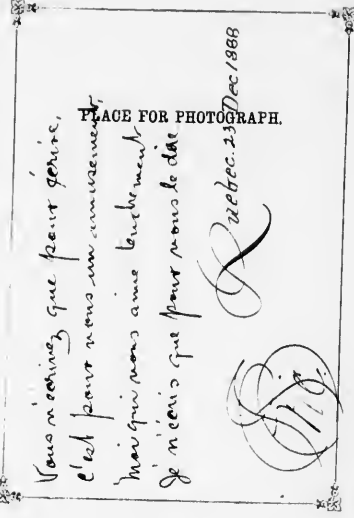 PLACE FOR PHOTOGRAPH.
Vous n'écrivez que pour écrire,
C'est pour vous un amusement,
Moi qui vous aime tendrement
Je n'écris que pour vous le dire
Quebec. 23 Dec 1888